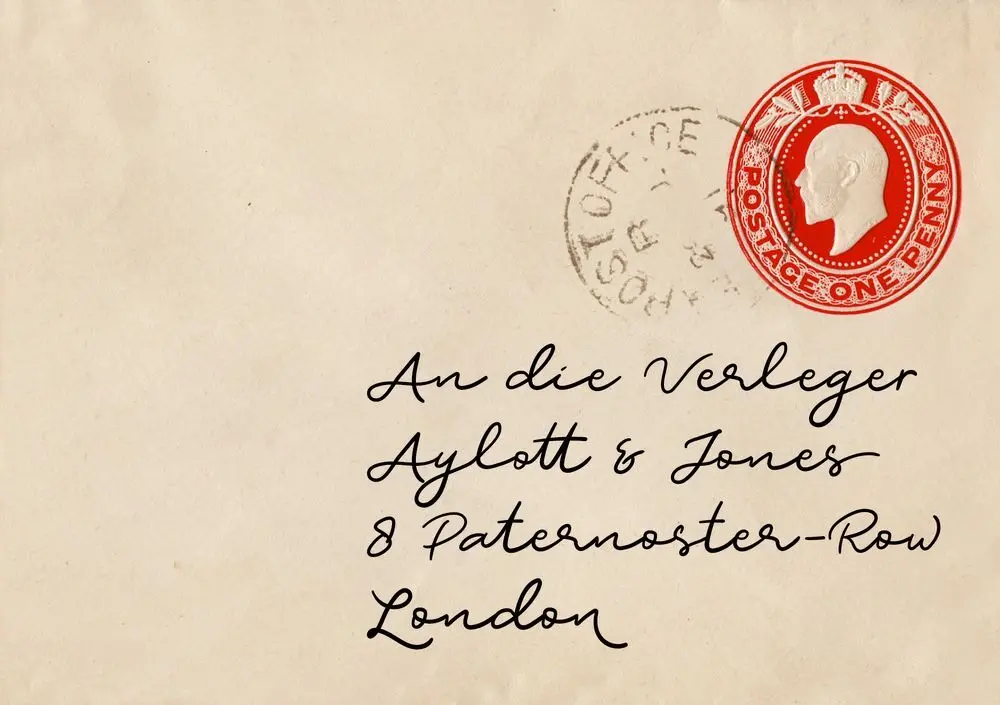 POST OFFICE
POSTAGE ONE PENNY
An die Verleger
Aylott & Jones
8 Paternoster-Row
London